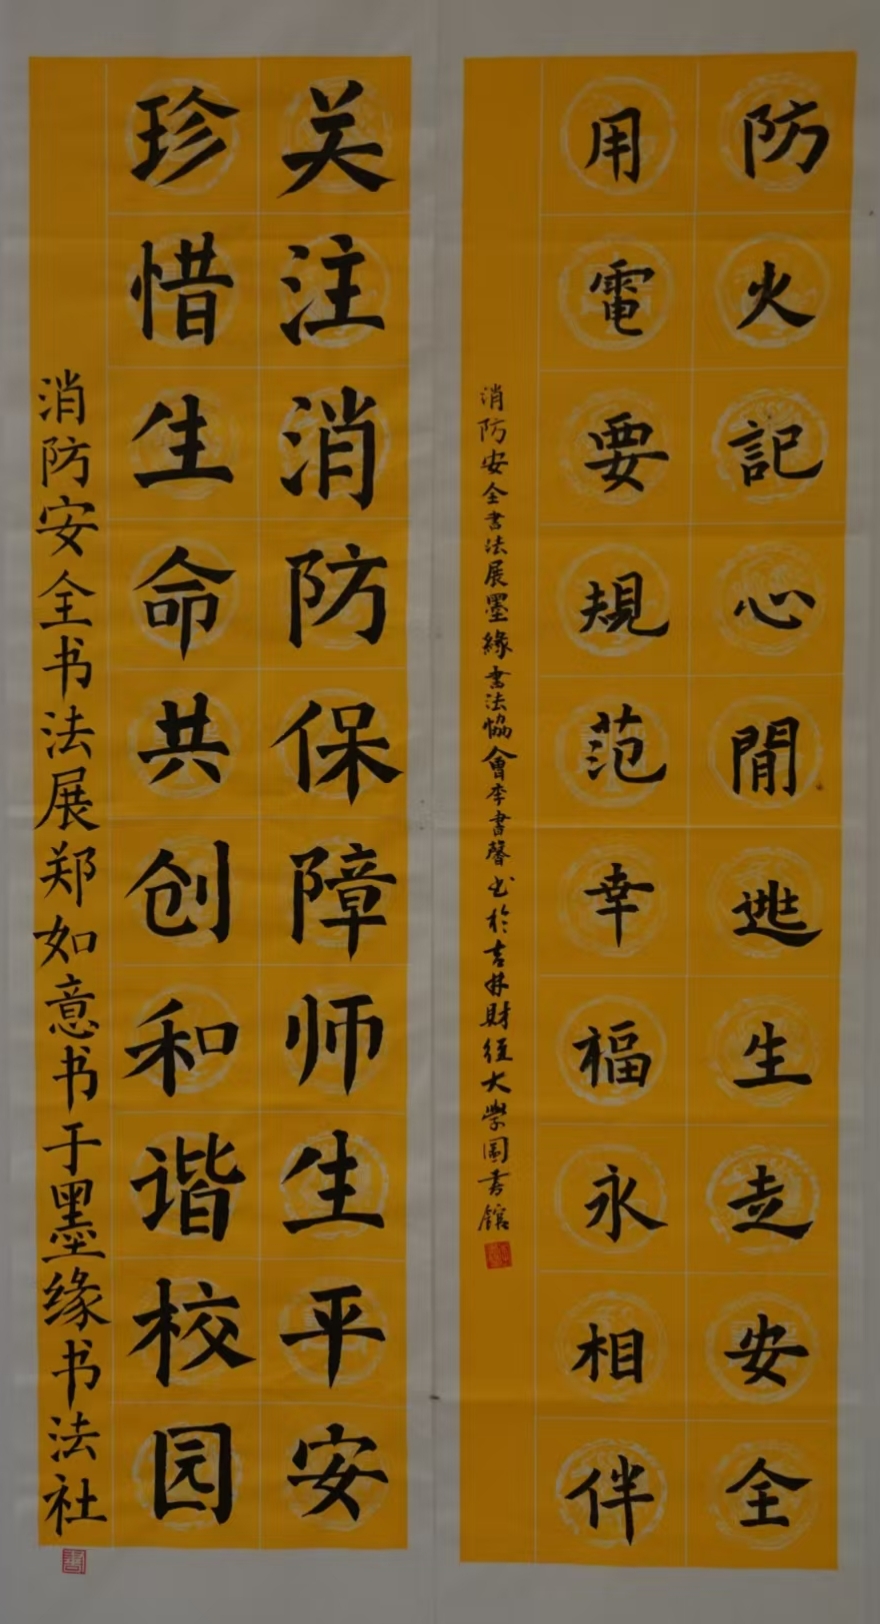 防火記心間逃生走安全
用電要規范幸福永相伴
消防安全書法展墨緣書法協會李書馨書於吉林財經大學圖書館
关注消防保障师生平安
珍惜生命共创和谐校园
消防安全书法展郑如意书于墨缘书法社